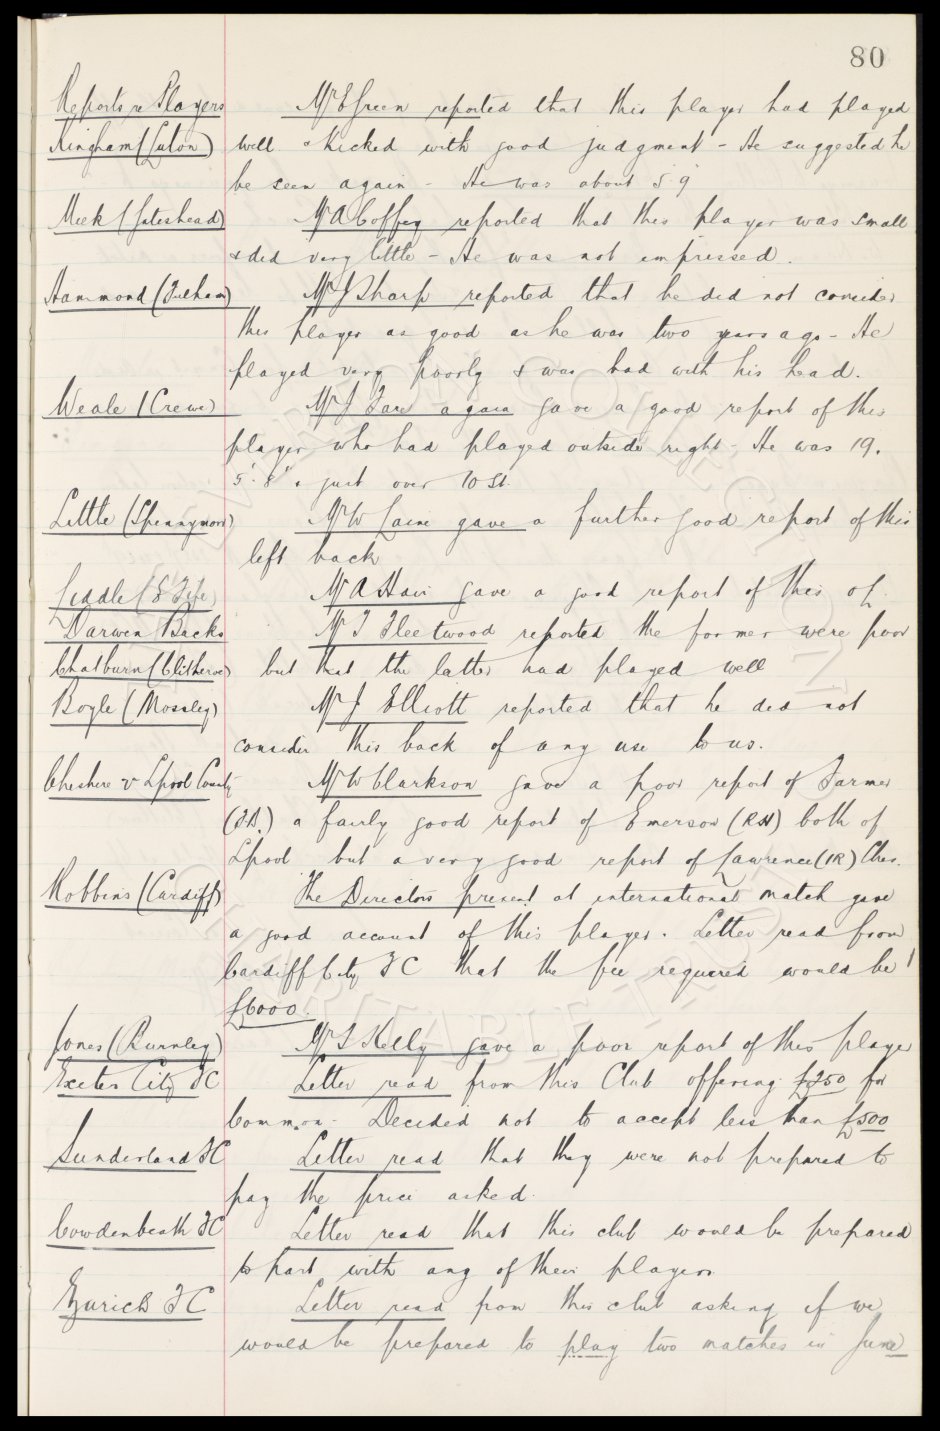 80
Reports re Players Mr E Green reported that this player had played
Kingham (Luton) well & kicked with good judgment - He suggested he
be seen again - He was about 5'9"
Meek (Gateshead) Mr A Coffey reported that this player was small
& did very little - He was not impressed.
Hammond (Fulham) Mr J Sharp reported that he did not consider
this player as good as he was two years ago - He
played very poorly & was bad with his head.
Weale (Crewe) Mr J Fare again gave a good report of this
player who had played outside right - He was 19.
5'.8" & just over 10 st.
Little (Spennymoor) Mr W Caine gave a further good report of this
left back
Liddle (E Fife) Mr A Hair gave a good report of this OL.
Darwen Backs Mr T Fleetwood reported the former were poor
Chatburn (Clitheroe) but that the latter had played well
Boyle (Mossley) Mr J Elliott reported that he did not
consider this back of any use to us.
Cheshire v Lpool County Mr W Clarkson gave a poor report of Farmer
(FB.) a fairly good report of Emerson (RH) both of
Lpool but a very good report of Lawrence (IR) Ches.
Robbins (Cardiff) The Directors present at international match gave
a good account of this player. Letter read from
Cardiff City FC that the fee required would be
£6000.
Jones (Burnley) Mr L Kelly gave a poor report of this player
Exeter City FC Letter read from this Club offering £250 for
Common - Decided not to accept less than £500
Sunderland FC Letter read that they were not prepared to
pay the price asked.
Cowdenbeath FC Letter read that this club would be prepared
to part with any of their players
Zurich FC Letter read from this club asking if we
would be prepared to play two matches in June